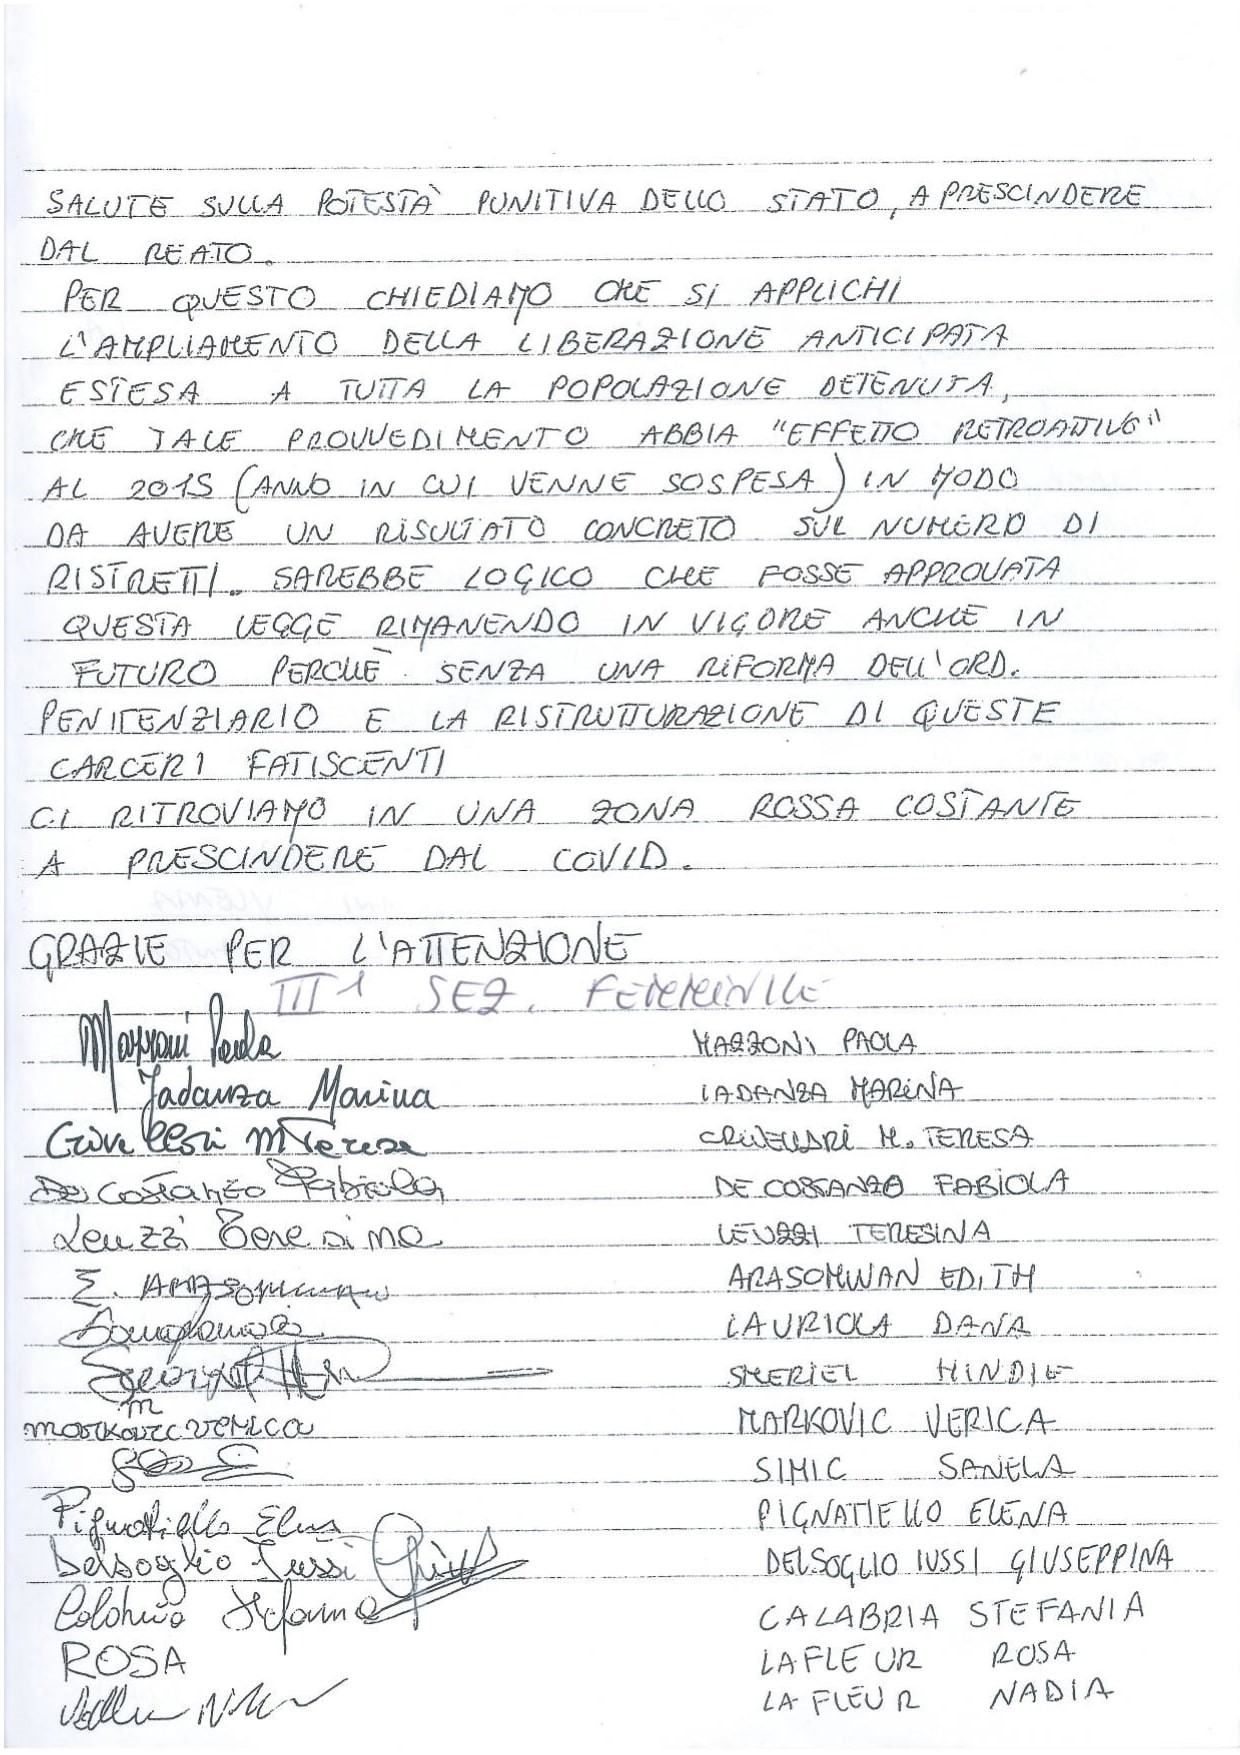 SALUTE SULLA POTESTÀ PUNITIVA DELLO STATO, A PRESCINDERE
DAL REATO.
PER QUESTO CHIEDIAMO CHE SI APPLICHI
L'AMPLIAMENTO DELLA LIBERAZIONE ANTICIPATA
ESTESA A TUTTA LA POPOLAZIONE DETENUTA,
CHE TALE PROVVEDIMENTO ABBIA "EFFETTO RETROATTIVO"
AL 2015 (ANNO IN CUI VENNE SOSPESA) IN MODO
DA AVERE UN RISULTATO CONCRETO SUL NUMERO DI
RISTRETTI. SAREBBE LOGICO CHE FOSSE APPROVATA
QUESTA LEGGE RIMANENDO IN VIGORE ANCHE IN
FUTURO PERCHÈ SENZA UNA RIFORMA DELL'ORD.
PENITENZIARIO E LA RISTRUTTURAZIONE DI QUESTE
CARCERI FATISCENTI
CI RITROVIAMO IN UNA ZONA ROSSA COSTANTE
A PRESCINDERE DAL COVID.
GRAZIE PER L'ATTENZIONE
III SEZ. FEMMINILE
Mazzoni Paola MAZZONI PAOLA
Iadanza Marina IADANZA MARINA
M Teresa M. TERESA
De Costanzo Fabiola DE COSTANZO FABIOLA
Leuzzi Teresina LEUZZI TERESINA
E. ARASOMWAN EDITH
LAURIOLA DANA
SHERIEL HINDIE
MARKOVIC VERICA
SIMIC SANELA
Pignatiello Elena PIGNATIELLO ELENA
Delsoglio Iussi DELSOGLIO IUSSI GIUSEPPINA
Calabria Stefania CALABRIA STEFANIA
ROSA LAFLEUR ROSA
LA FLEUR NADIA